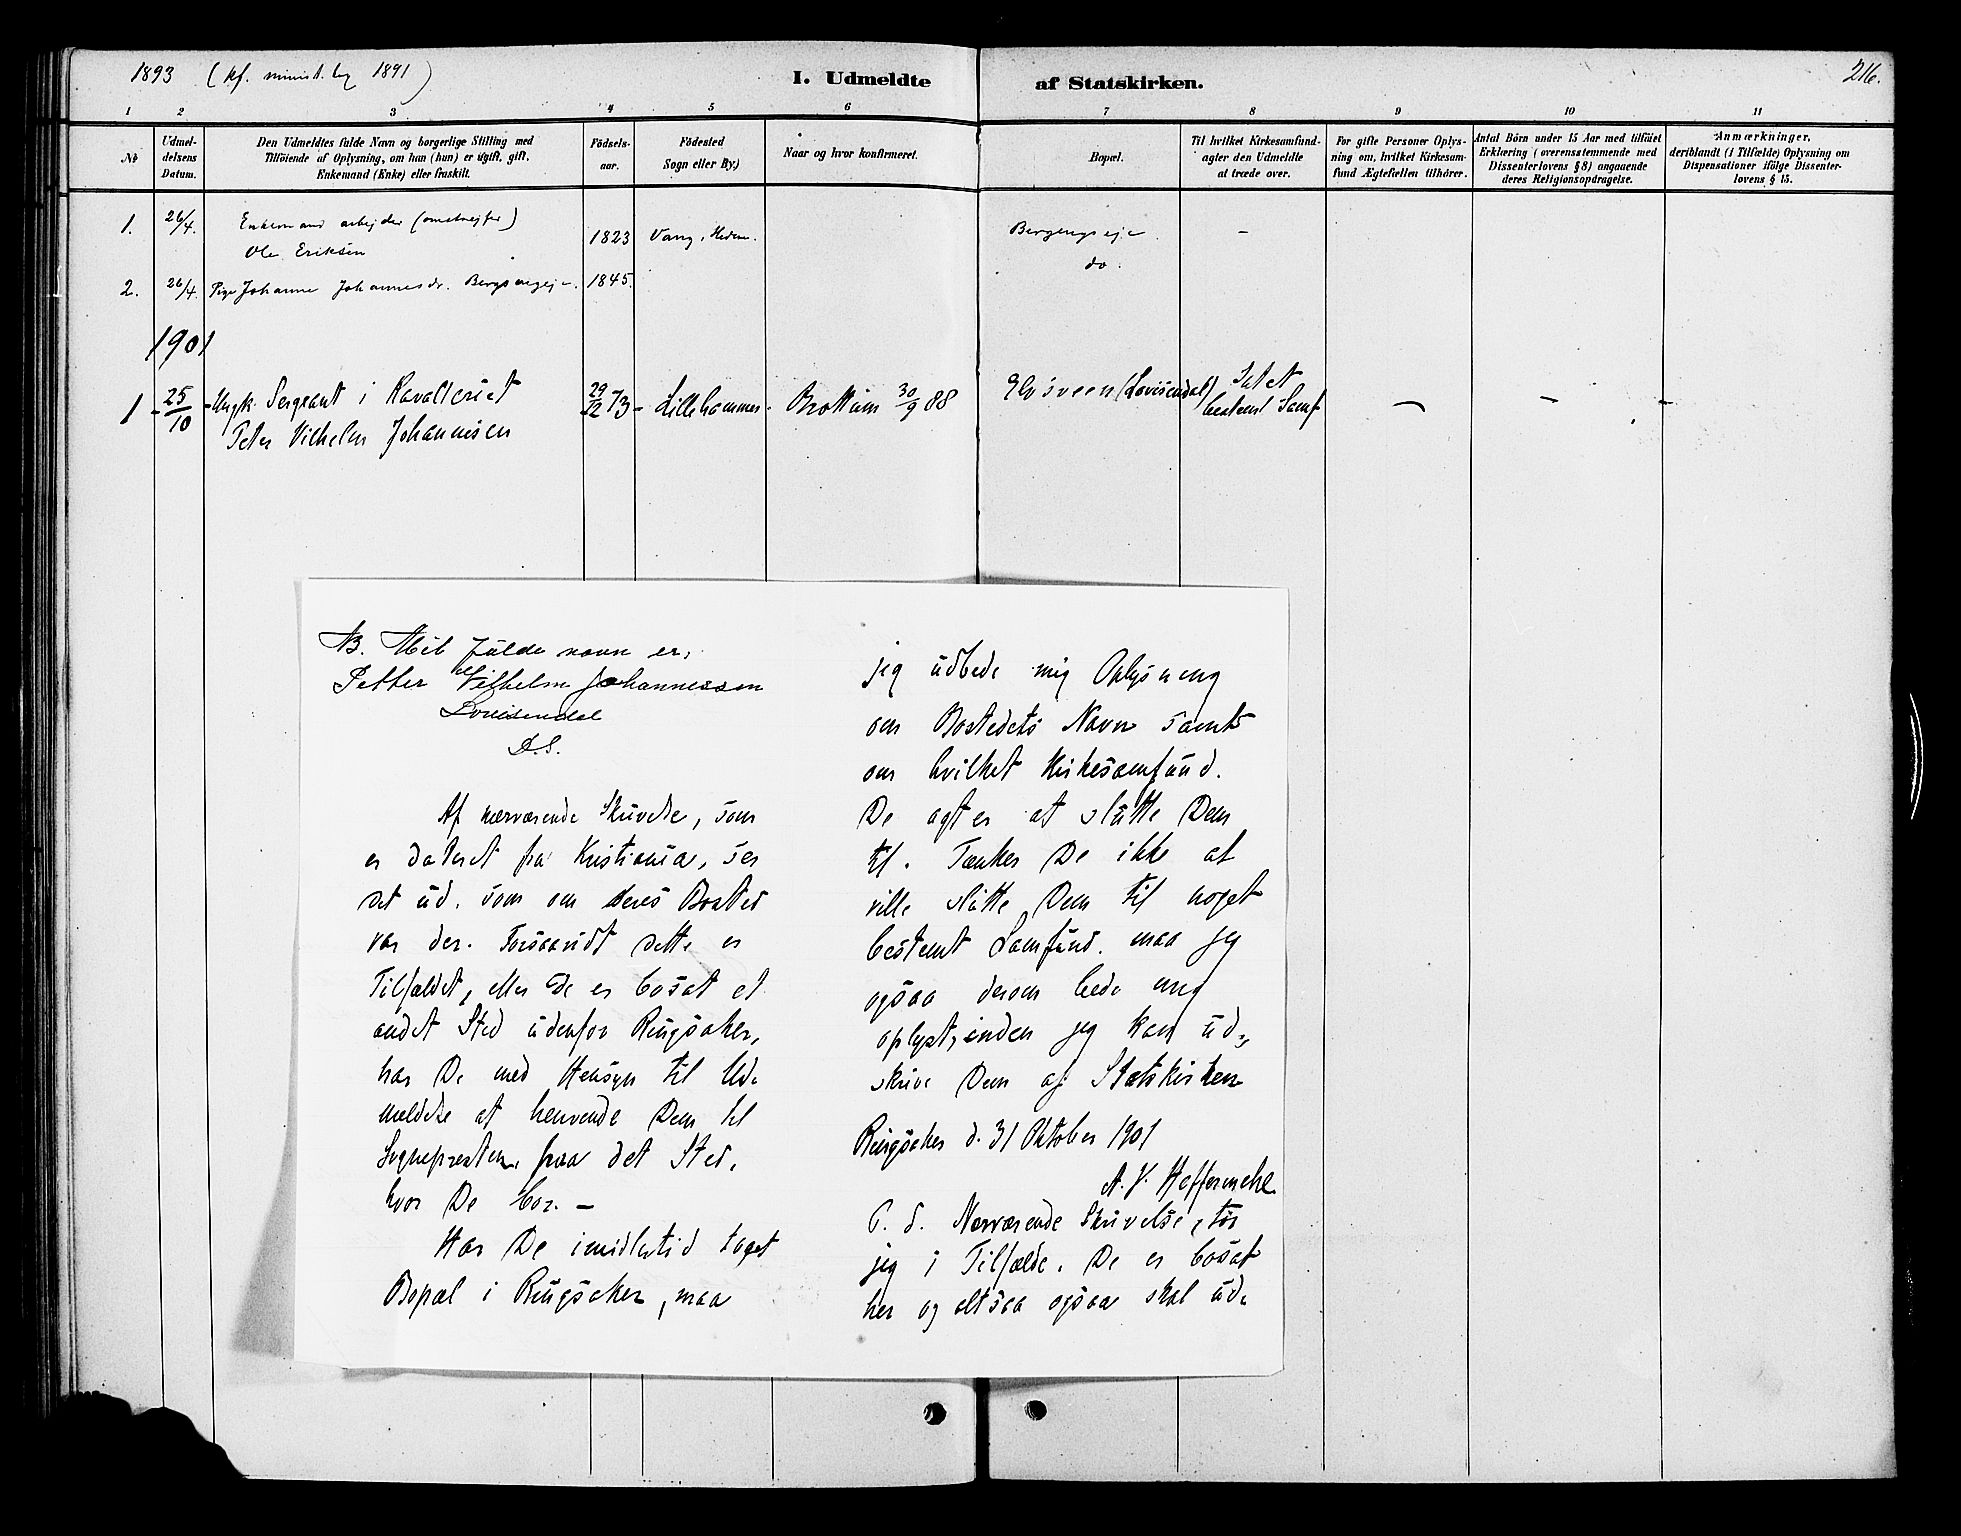 1893 (kf. minist. bog 1891)
I. Udmeldte af Statskirken.
216.
1 2 3 4 5 6 7 8 9 10 11
No
Udmel-
delsens
Datum.
Den Udmeldtes fulde Navn og borgerlige Stilling med
Tilföiende af Oplysning, om han (hun) er ugift, gift,
Enkemand (Enke) eller fraskilt.
Födsels-
aar.
Födested
Sogn eller By)
Naar og hvor konfirmeret.
Bopæl.
Til hvilket Kirkesamfund-
agter den Udmeldte
at træde over.
For gifte Personer Oplys-
ning om, hvilket Kirkesam-
fund Ægtefællen tilhörer.
Antal Börn under 15 Aar med tilföiet
Erklæring (overensstemmende med
Dissenterlovens § 8) angaaende
deres Religionsopdragelse.
Anmærkninger,
deriblandt (i Tilfælde) Oplysning om
Dispensationer ifölge Dissenter-
lovens § 15.
1. 26/4. Enkemand arbejder (omstreifer)
Ole Eriksen 1823 Vang, Hedem. Bergengseje. -
do.
2. 26/4. Pige Johanne Johannesdr. Bergsengeje. 1845.
1901
1 - 25/10 - Ungk. Sergeant i Kavalleriet
Peter Vilhelm Johannesen
29/12 73 - Lillehammer - Brøttum 30/9 88 Elvsveen (Lovisendal) Intet
bestemt Samf - - -
NB. Mit fulde navn er,
Petter Vilhelm Johannessen
Lovisendal
D.S.
Af nærværende Skrivelse, som
er dateret fra Kristiania, ser
det ud, som om deres Bosted
var der. Forsaavidt dette er
Tilfældet, eller De er bosat et
andet Sted udenfor Ringsaker,
har De med Hensyn til Ud-
meldelse at henvende Dem til
Sognepresten paa det Sted,
hvor De bor. -
Har De imidlertid taget
Bopæl i Ringsaker, maa
jeg udbede mig Oplysning
om Bostedets Navn samt
om hvilket Kirkesamfund.
De agter at slutte Dem
til. Tænker De ikke at
ville slutte Dem til noget
bestemt Samfund. maa jeg
ogsaa derom bede mig
oplyst, inden jeg kan ud-
skrive Dem af Statskirken
Ringsaker d. 31 Oktober 1901
A. V. Heffermehl
P. S. Nærværende Skrivelse, tør
jeg i Tilfælde. De er bosat
her og altsaa ogsaa skal ud-